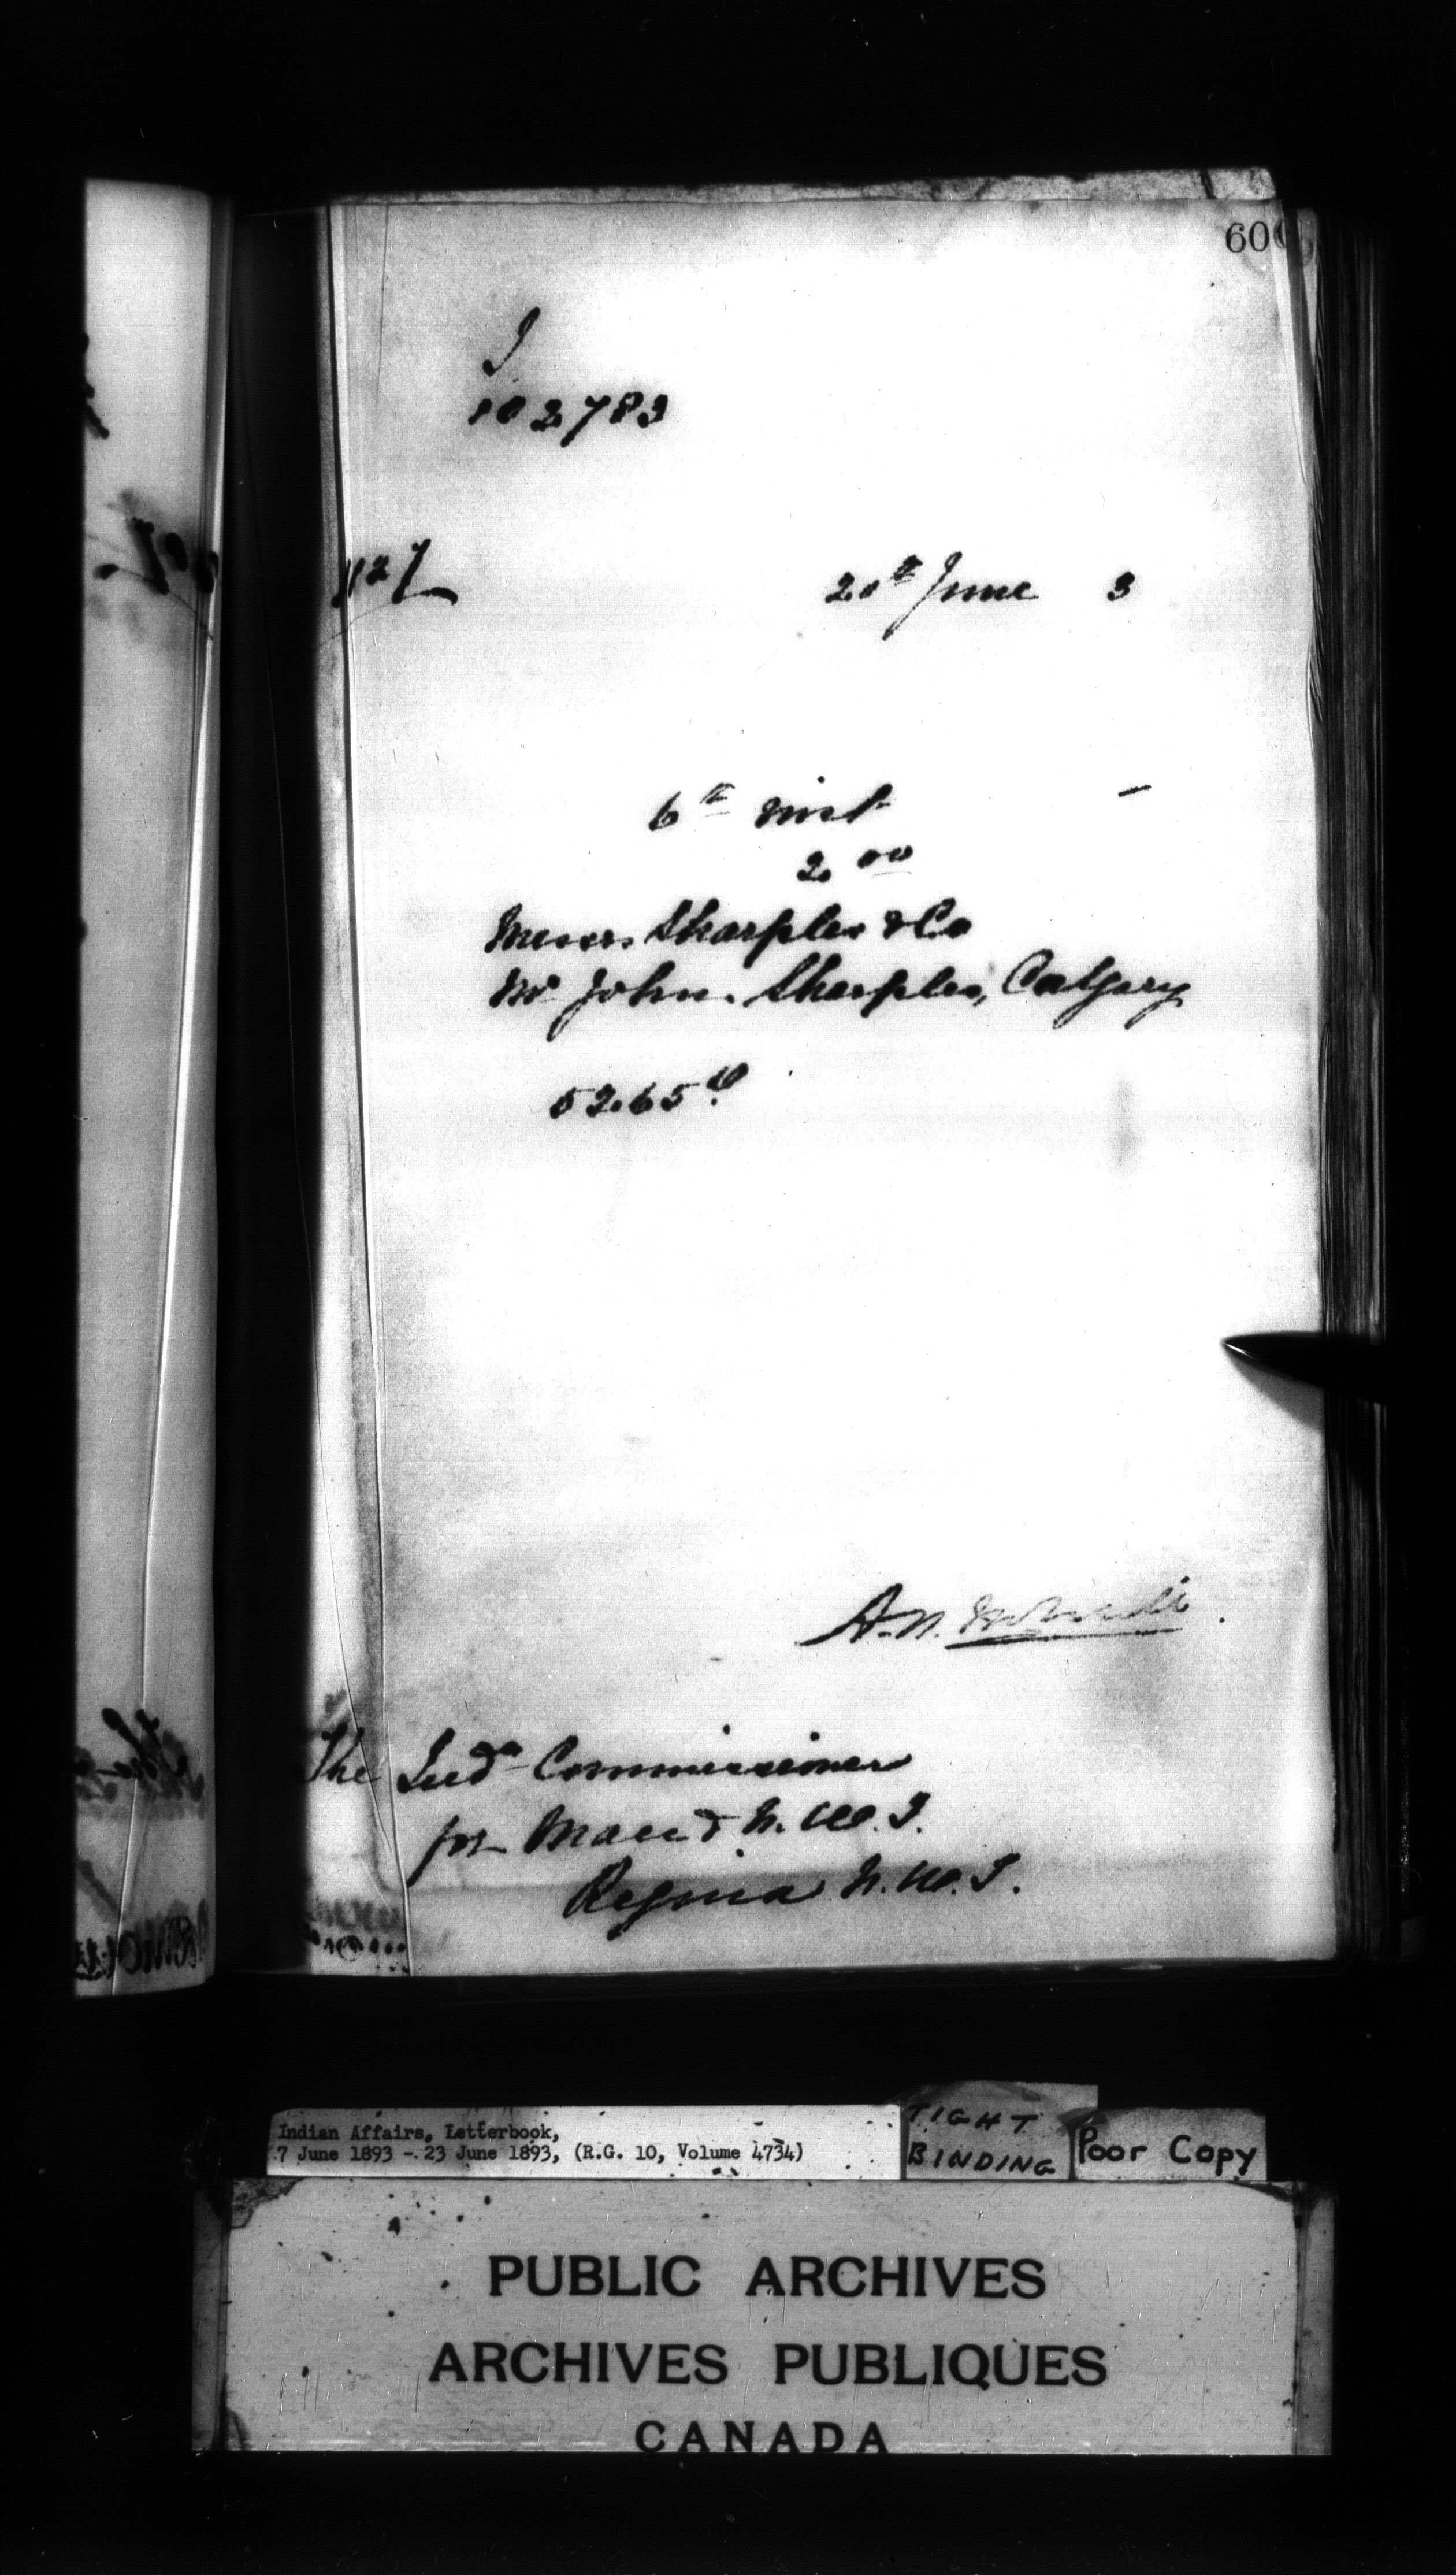 60
J
102783
1127
20th June 3
6th inst -
2 00
Messrs. Sharples & Co
Mr John. Sharples, Calgary
5265
A.N.
The Indn Commissioner
for Man & N.W.T.
Regina N.W.T.
Indian Affairs, Letterbook,
7 June 1893 - 23 June 1893, (R.G. 10, Volume 4734)
TIGHT
BINDING
Poor Copy
PUBLIC ARCHIVES
ARCHIVES PUBLIQUES
CANADA